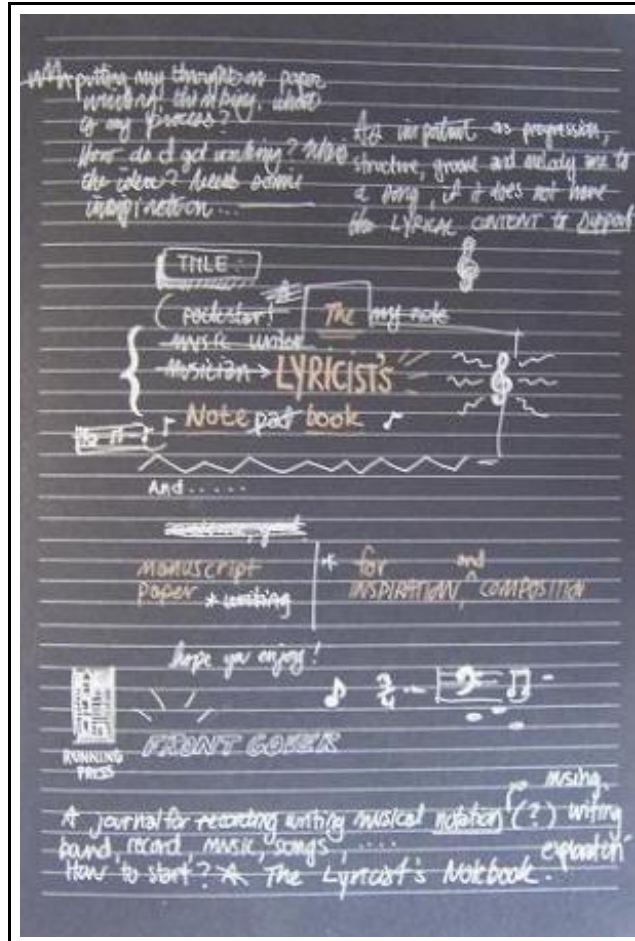 putting my thoughts on paper
writing, thinking, what
is my process?
How do I get writing?
the idea? Need some
inspiration...
As important as progression,
structure, groove and melody are to
a song, if it does not have
the LYRICAL CONTENT to support
TITLE:
(rockstar!
The my note
music writer
musician > LYRICIST'S
Note pad book
And.....
manuscript
paper * writing
* for and
INSPIRATION COMPOSITION
hope you enjoy!
RUNNING
PRESS
FRONT COVER
A journal for recording writing musical notation (?) writing
band, record, music, songs, ....
How to start? A The Lyricist's Notebook.